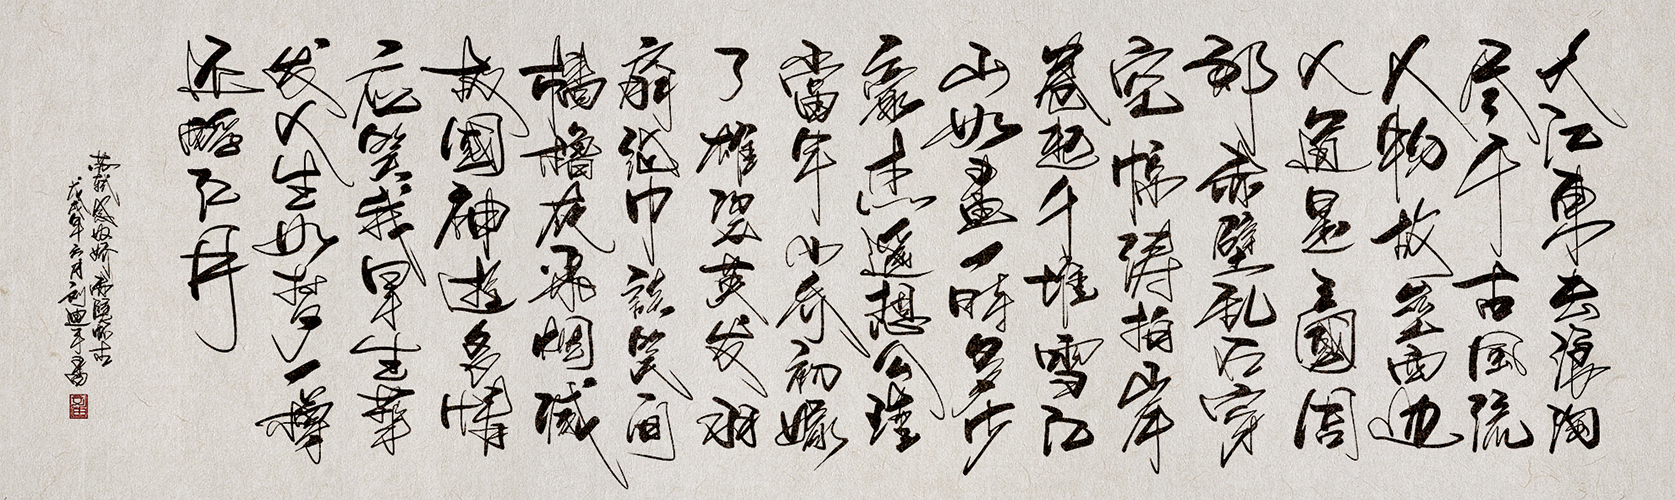 大江東去浪淘
尽千古風流
人物故垒西边
人道是三國周
郎赤壁乱石穿
空惊涛拍岸
卷起千堆雪江
山如畫一時多少
豪杰遥想公瑾
當年小乔初嫁
了雄姿英发羽
扇纶巾談笑间
檣櫓灰飛烟滅
故國神遊多情
应笑我早生華
发人生如梦一樽
还酹江月
苏轼念奴娇赤壁怀古
戊戌年六月刘迪平書